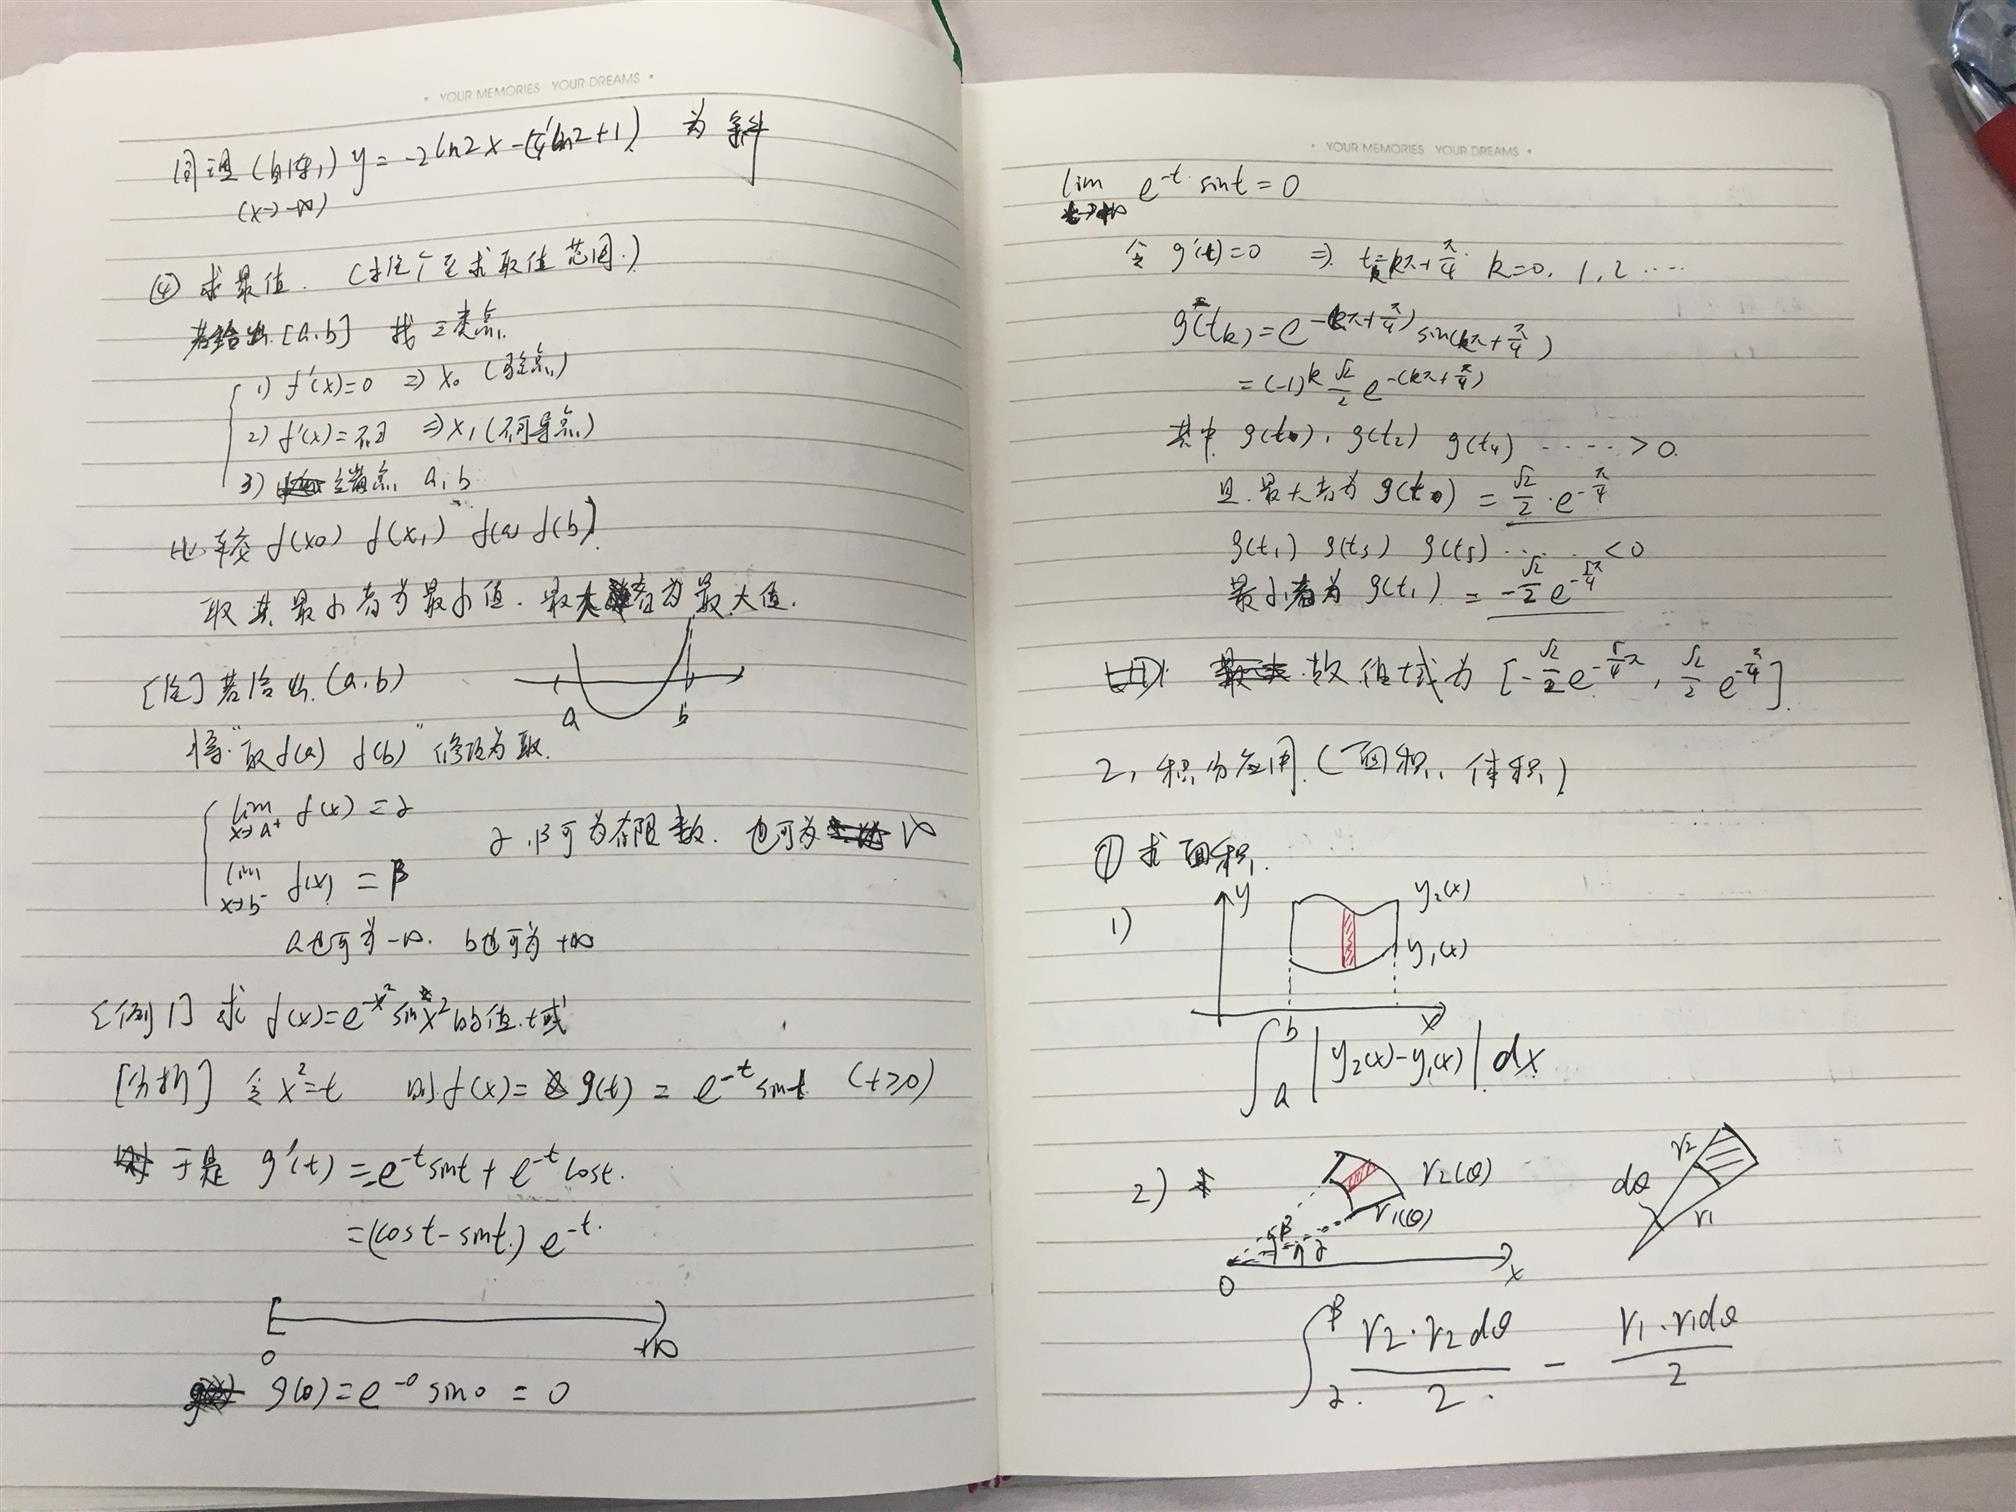 YOUR MEMORIES YOUR DREAMS
同理(自算) y = -2ln2x-( ln2+1) 为斜
(x→-∞)
④ 求最值. (求值域)
若给出 [a,b] 找三类点.
1) f'(x)=0 ⇒ x₀ (驻点)
2) f'(x)=不∃ ⇒ x₁ (不可导点)
3) 端点 a, b
比较 f(x₀) f(x₁) f(a) f(b)
取其最小者为最小值. 最大者为最大值.
[注] 若给出 (a,b)
a b
将"取f(a) f(b)"修改为取.
lim x→a⁺ f(x) = α
α,β可为有限数. 也可为 ∞
lim x→b⁻ f(x) = β
a也可为 -∞. b也可为 +∞
[例1] 求 f(x)=e^{-x²} sin x² 的值域
[分析] 令 x²=t 则 f(x)= g(t) = e^{-t} sint (t≥0)
于是 g'(t) = -e^{-t} sint + e^{-t} cost.
=(cost-sint.) e^{-t}.
0 +∞
g(0) = e^{-0} sin0 = 0
YOUR MEMORIES YOUR DREAMS
lim e^{-t} sint = 0
令 g'(t)=0 ⇒ t_k=kπ+π/4 k=0, 1, 2 ....
g(t_k) = e^{-(kπ+π/4)} sin(kπ+π/4)
= (-1)^k √2/2 e^{-(kπ+π/4)}
其中 g(t₀), g(t₂) g(t₄) ..... >0.
且 最大者为 g(t₀) = √2/2 · e^{-π/4}
g(t₁) g(t₃) g(t₅) ..... <0
最小者为 g(t₁) = -√2/2 e^{-5π/4}
故值域为 [-√2/2 e^{-5/4π}, √2/2 e^{-π/4}]
2, 积分应用 (面积、体积)
① 求面积.
1)
y y₂(x)
y₁(x)
x
∫_a^b |y₂(x)-y₁(x)| dx
2)
r₂(θ) r₂
r₁(θ) dθ r₁
β α
0 x
∫_α^β r₂·r₂dθ/2 - r₁·r₁dθ/2